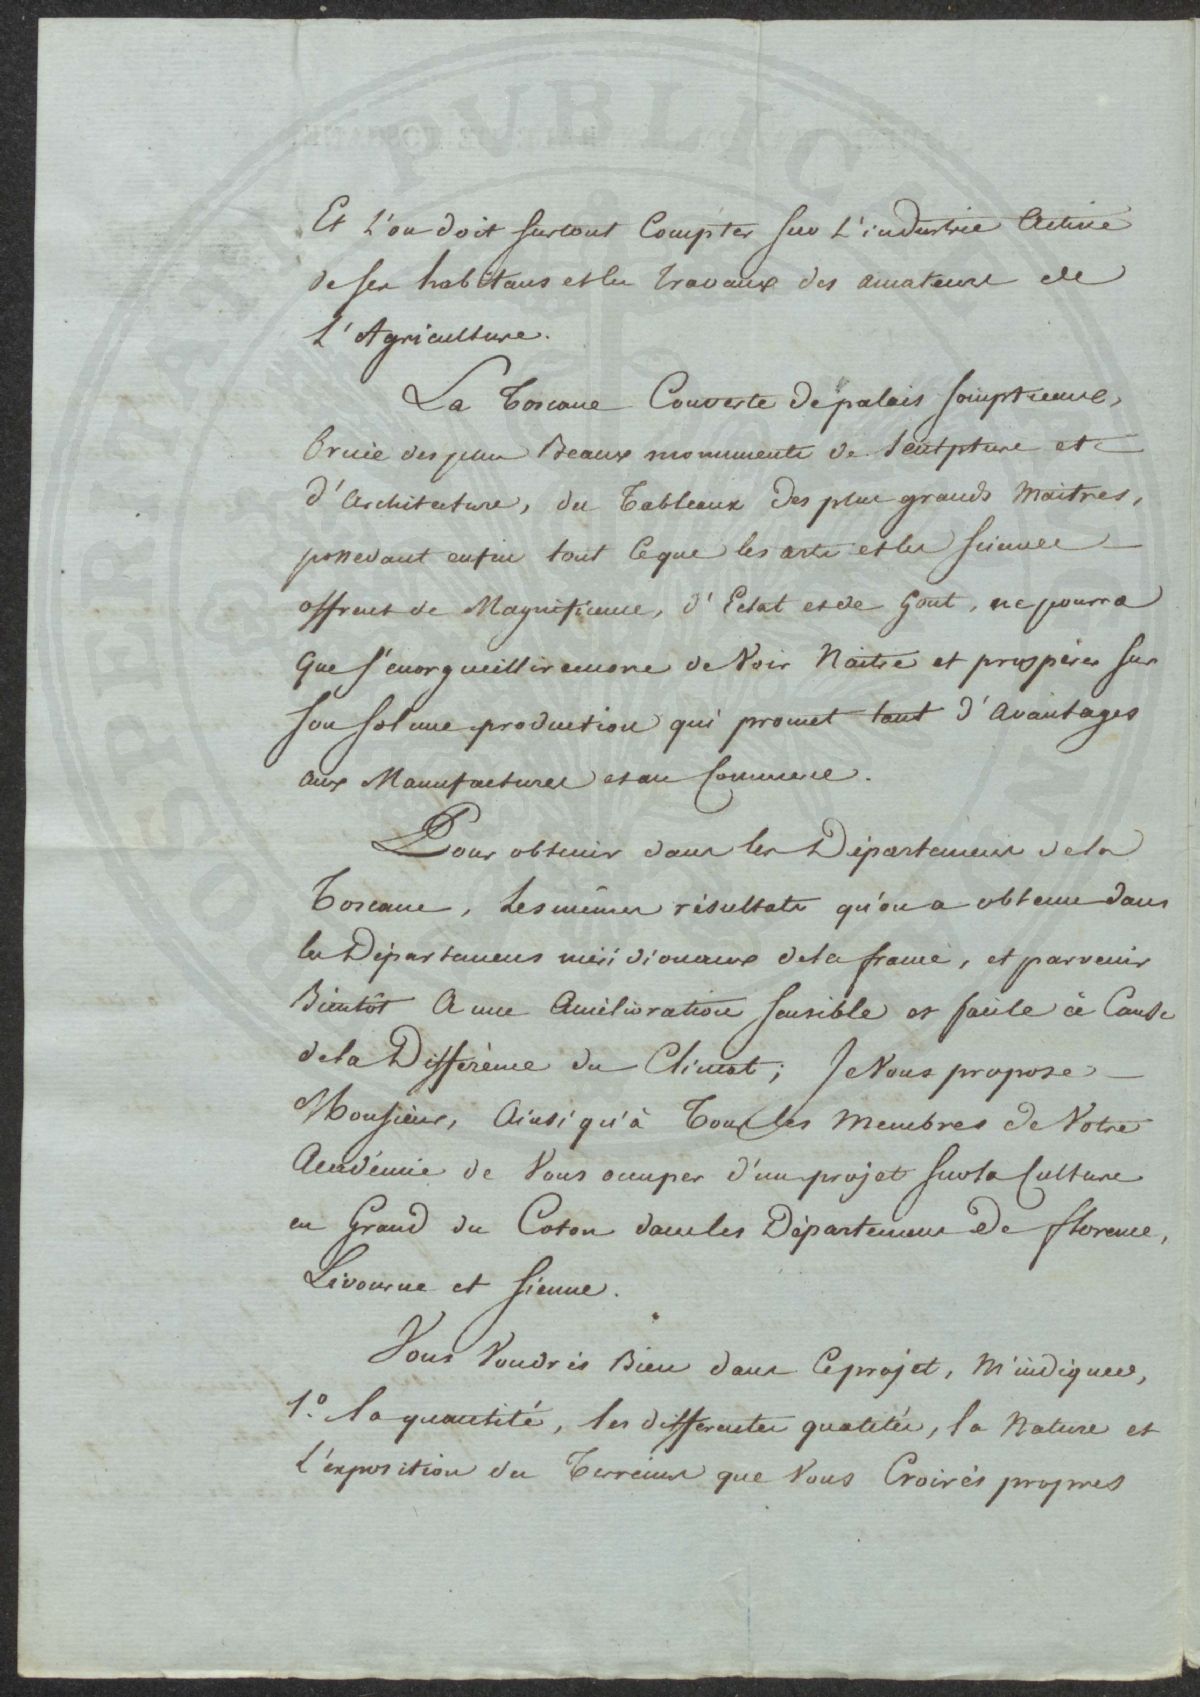 Et l'on doit surtout Compter sur l'industrie Active
de ses habitans et les travaux des amateurs de
L'Agriculture.
La Toscane Couverte de palais somptueux,
Ornée des plus Beaux monuments de Sculpture et
d'Architecture, des Tableaux Des plus grands Maitres,
possedant enfin tout Ceque les arts et les sciences
offrent de Magnificence, d'Eclat et de Gout, ne pourra
Que s'enorgueillir encore de Voir Naitre et prospérer sur
Son sol une production qui promet tant d'Avantages
aux Manufactures et au Commerce.
Pour obtenir dans les Départemens de la
Toscane, Les mêmes résultats qu'on a obtenu dans
les Départemens méridionaux de la france, et parvenir
Bientôt A une Amélioration sensible et facile à Cause
de la Différence du Climat; Je Vous propose
Monsieur, Ainsi qu'à Tous les Membres de Votre
Académie de Vous occuper d'un projet sur la Culture
en Grand du Coton dans les Départemens De florence,
Livourne et Sienne.
Vous Voudrés Bien dans Ce projet, M'indiquer,
1.º la quantité, les differentes qualités, la Nature et
L'exposition des Terreins que Vous Croirés propres
COPIA
PUBLICA